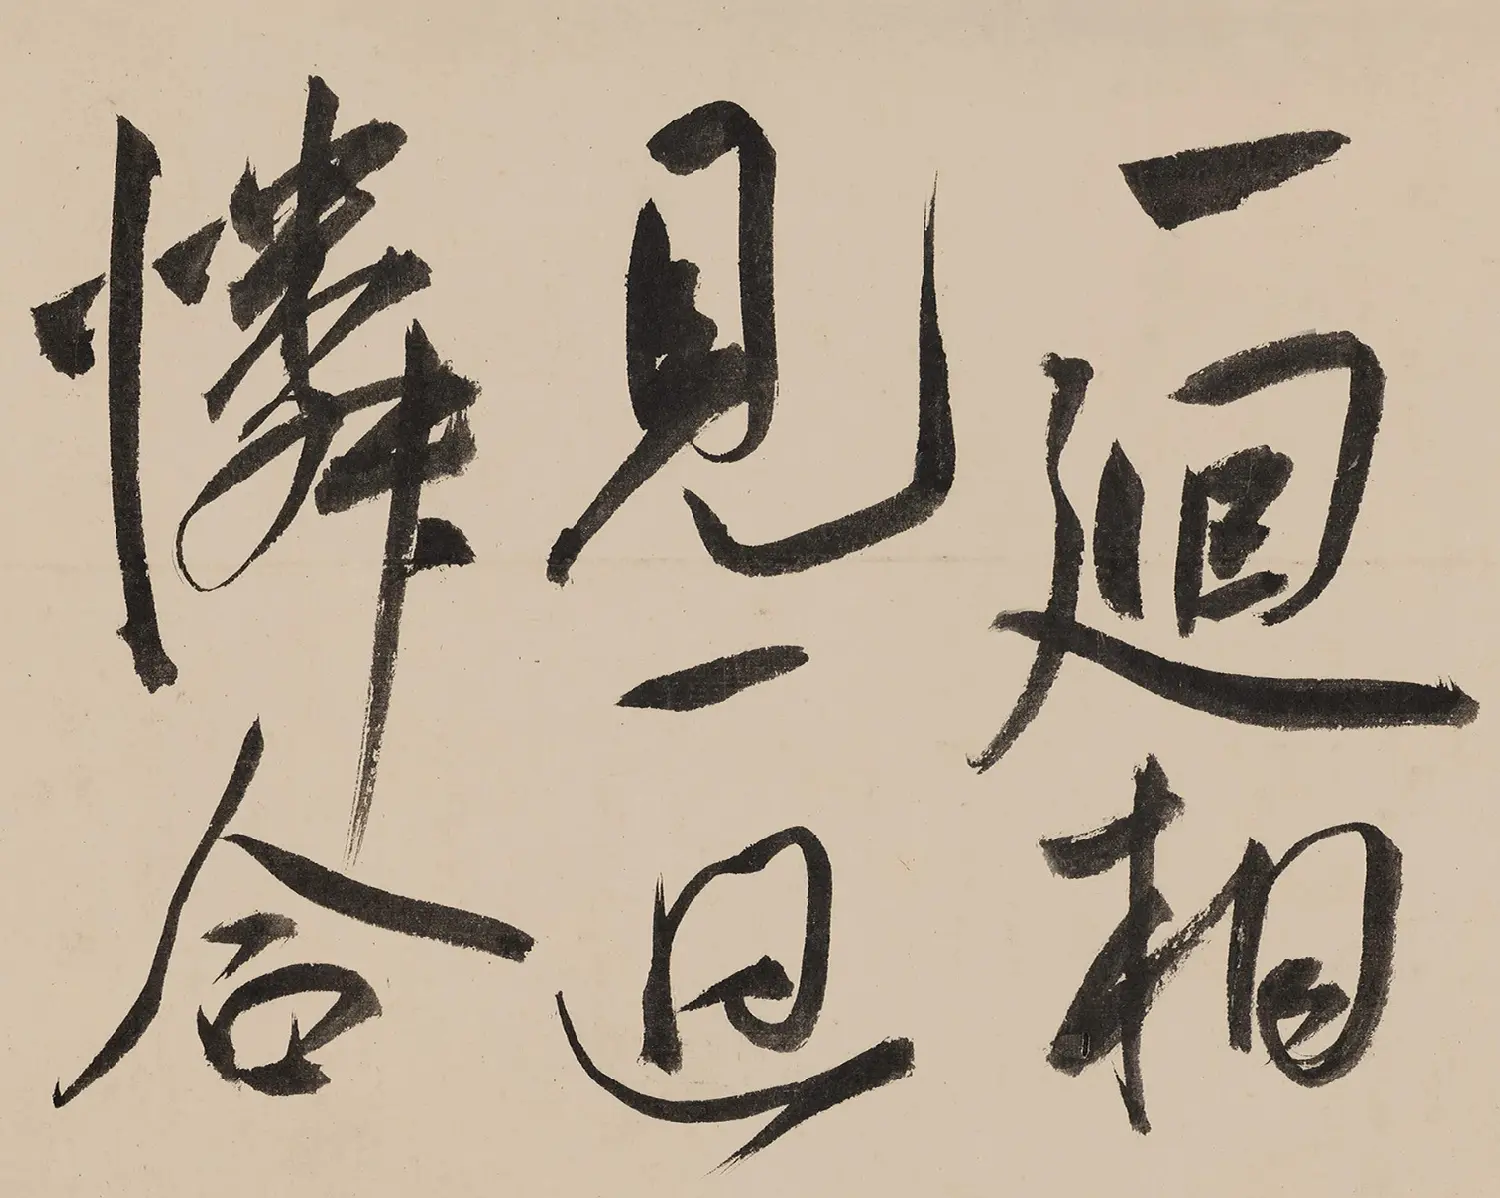 一廻相
見一迴
憐合